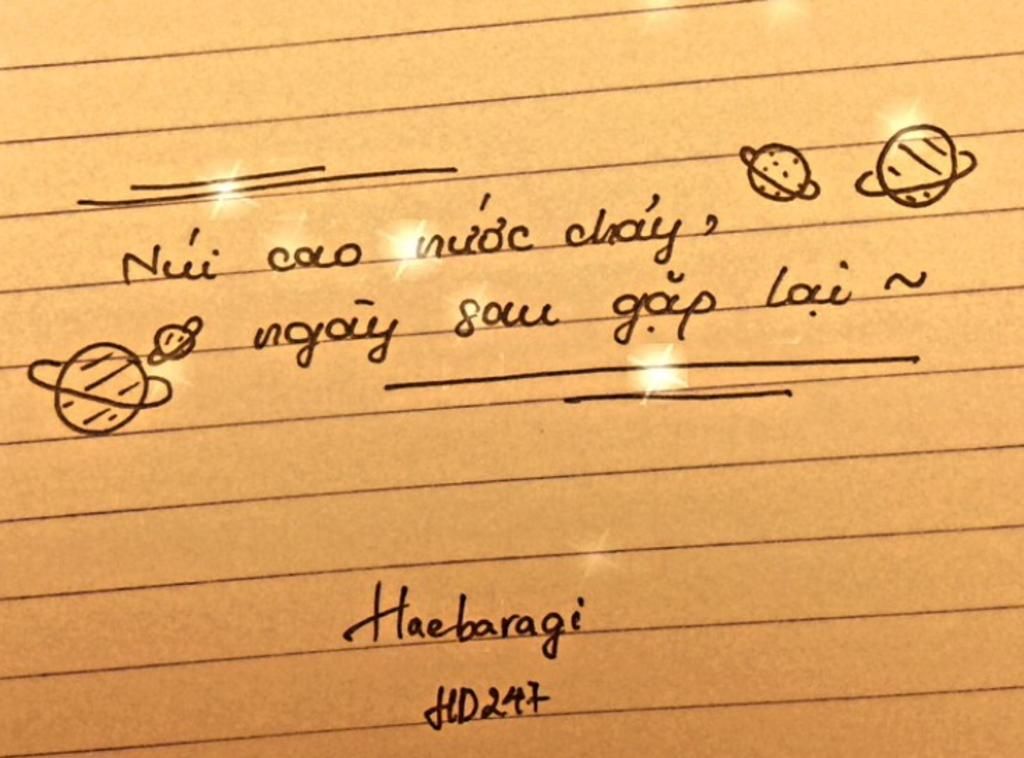 Núi cao nước chảy,
ngày sau gặp lại ~
Haebaragi
HD247